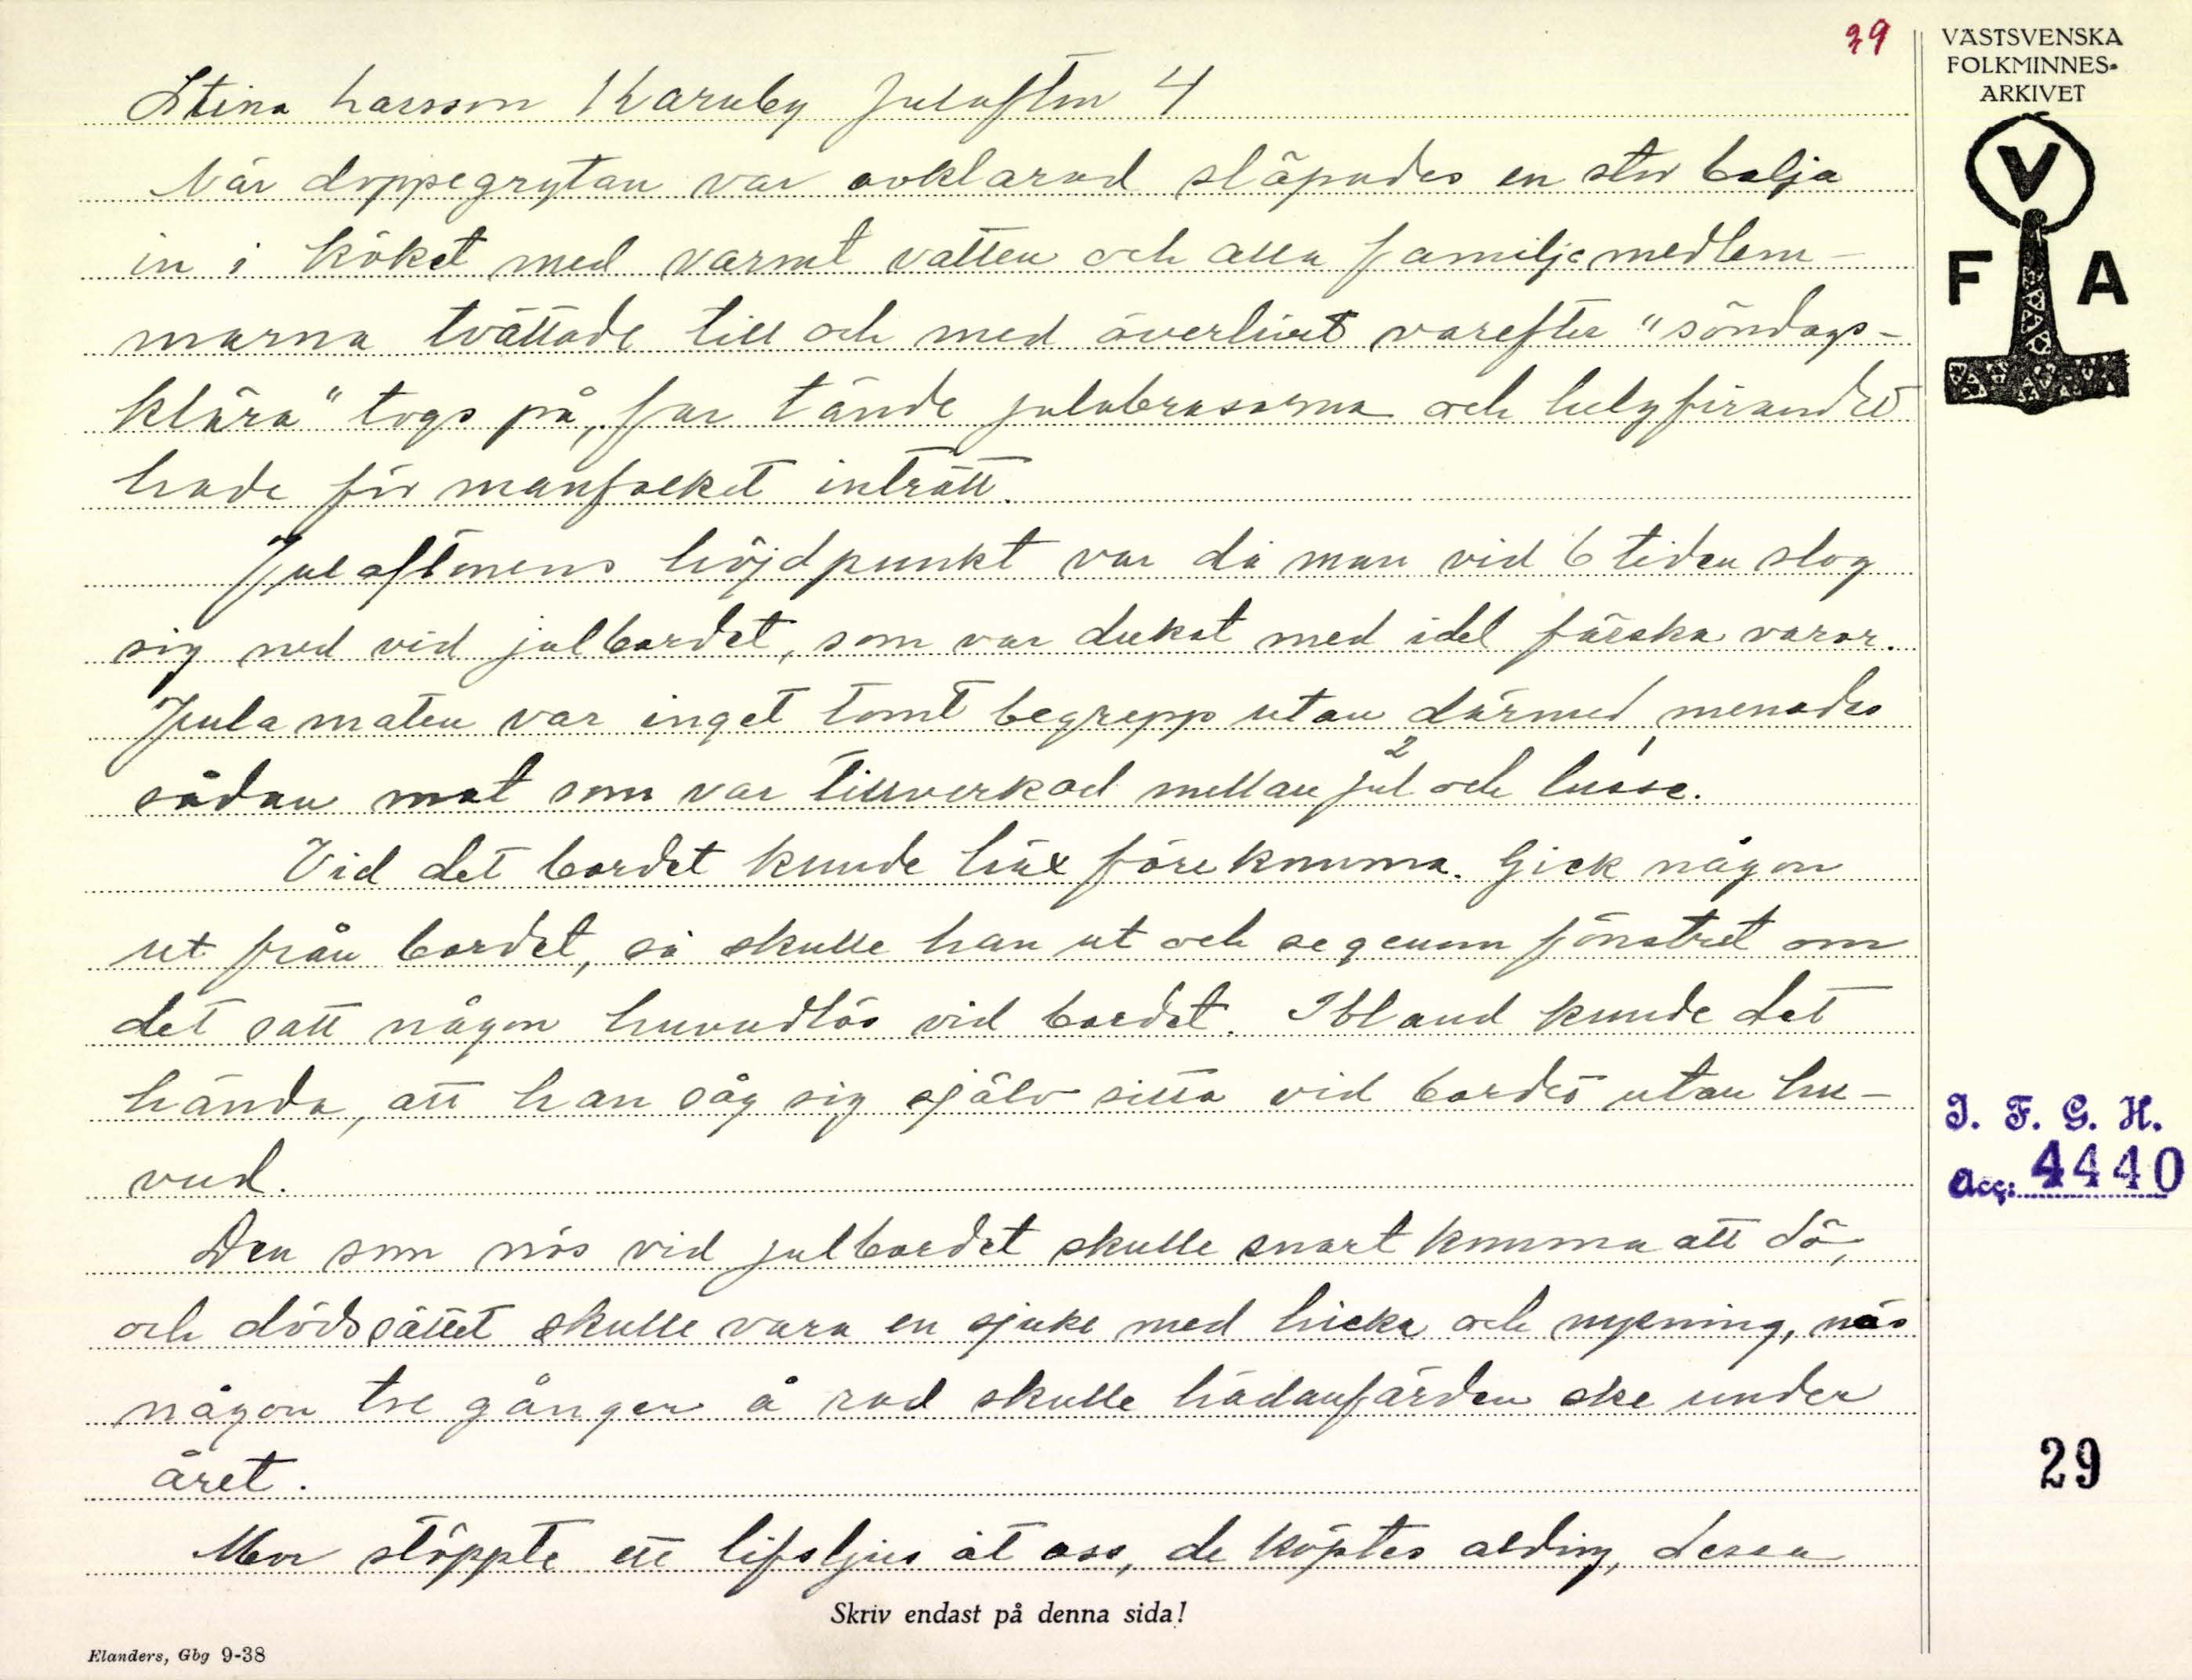 29
VÄSTSVENSKA
FOLKMINNES-
ARKIVET
V
F A
Stina Larsson Karaby Julafton 4
När doppegrytan var avklarad släpades en stor balja
in i köket med varmt vatten och alla familjemedlem-
marna tvättade till och med överlivet varefter "söndags-
klära" togs på, far tände julabrasorna och helgfirandet
hade för manfolket inträtt.
Julaftonens höjdpunkt var då man vid 6 tiden slog
sig ned vid julbordet, som var dukat med idel färska varor.
Jula maten var inget tomt begrepp utan därmed menades
sådan mat som var tillverkad mellan jul och lusse.
2 1
Vid det bordet kunde häx förekomma. Gick någon
ut från bordet, så skulle han ut och se genom fönstret om
det satt någon huvudlös vid bordet. Ibland kunde det
hända, att han såg sig själv sitta vid bordet utan hu-
vud.
Den som nös vid julbordet skulle snart komma att dö,
och dödssättet skulle vara en sjuke med hicka och nysning, nös
någon tre gånger å rad skulle hädanfärden ske under
året.
Mor stöppte ett lifsljus åt oss, de köptes aldrig, dessa
I. F. G. H.
Acc: 4440
29
Skriv endast på denna sida!
Elanders, Gbg 9-38